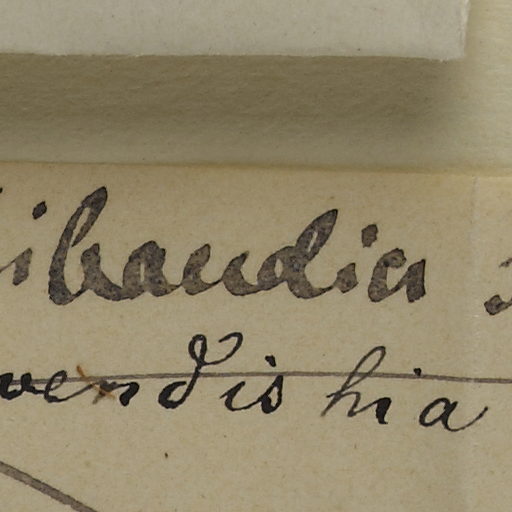 ibaudia
vendishia